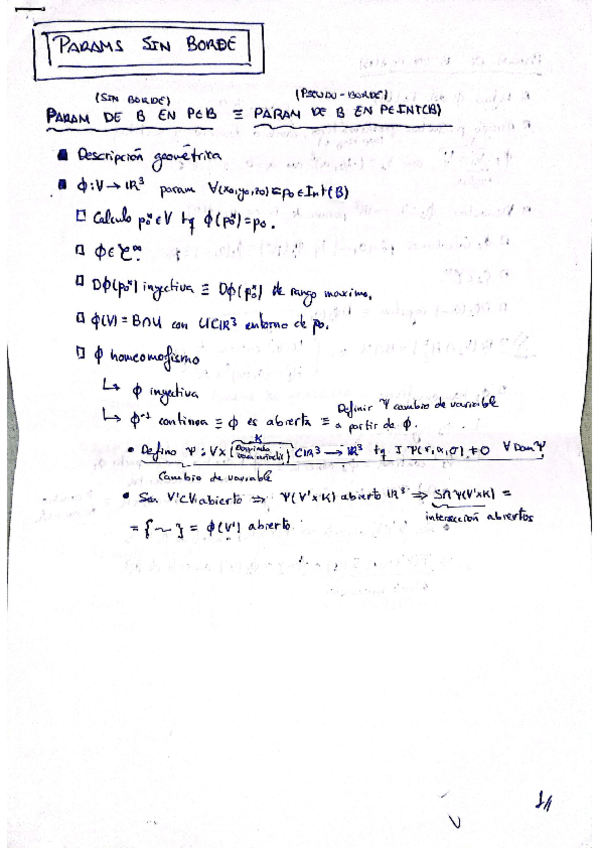 PARAMS SIN BORDE
(SIN BORDE) (PSEUDO-BORDE)
PARAM DE B EN P∈B ≡ PARAM DE B EN P∈INT(B)
■ Descripción geométrica
■ ϕ: V → ℝ³ param ∀(x₀,y₀,z₀)=p₀ ∈ Int(B)
□ Calculo p₀* ∈ V tq ϕ(p₀*)=p₀.
□ ϕ ∈ C^∞.
□ Dϕ(p₀*) inyectiva ≡ Dϕ(p₀*) de rango maximo.
□ ϕ(V) = B∩U con U⊂ℝ³ entorno de p₀.
□ ϕ homeomofismo
↳ ϕ inyectiva
↳ ϕ⁻¹ continua ≡ ϕ es abierta ≡ Definir Ψ cambio de variable a partir de ϕ.
K
• Defino Ψ: V×( ) ⊂ ℝ³ → ℝ³ tq J Ψ(r,α,σ) ≠ 0 ∀ Dom Ψ
Cambio de variable
• Sea V'⊂V abierto ⇒ Ψ(V'×K) abierto ℝ³ ⇒ S∩Ψ(V'×K) =
= {~} = ϕ(V') abierto
intersección abiertos